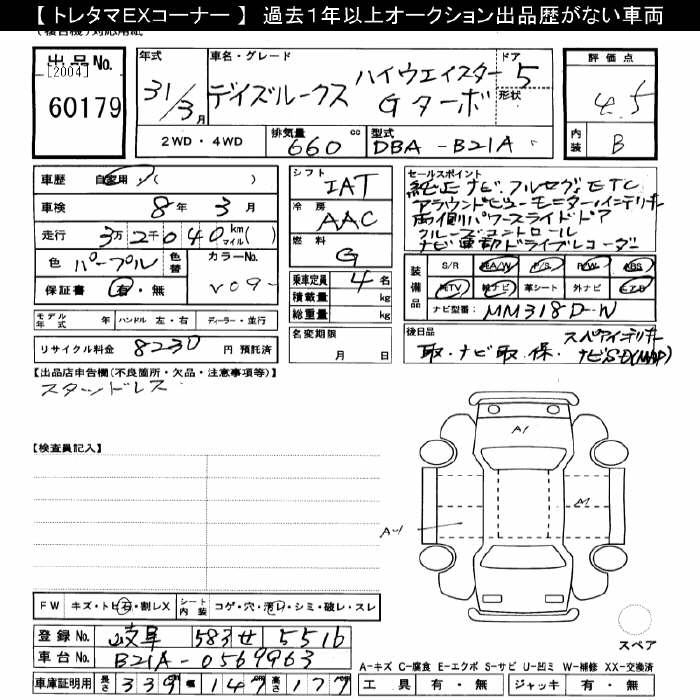 【 トレタマEXコーナー 】 過去１年以上オークション出品歴がない車両
出品No.
[2004]
60179
年式
31/3月
車名・グレード
デイズルークス ハイウェイスター
Gターボ
ドア
5
形状
評価点
4.5
内装
B
2WD・4WD
排気量
660 cc
型式
DBA-B21A
車歴
自家用 ( )
車検
8年 3月
走行
3万2千040 km マイル( )
色
パープル
色替
カラーNo.
V09-
保証書
有・無
モデル年式 年
ハンドル 左・右
ディーラー・並行
リサイクル料金 8230 円 預託済
シフト
IAT
冷房
AAC
燃料
G
乗車定員 4 名
積載量 kg
総重量 kg
名変期限
月 日
セールスポイント
純正ナビ フルセグ ETC
アラウンドビューモニター・インテリキー
両側パワースライドドア
クルーズコントロール
ナビ連動ドライブレコーダー
装備品
S/R 純A/W P/S P/W ABS
純TV 純ナビ 革シート 外ナビ
ナビ型番: MM318D-W
後日品
取・ナビ取 保 スペアインテリキー
ナビSD(MAP)
【出品店申告欄(不良箇所・欠品・注意事項等)】
スタッドレス
【検査員記入】
A1
A1
FW
キズ・トビ石・割レX
シート内装
コゲ・穴・汚レ・シミ・破レ・スレ
登録No. 岐阜 583 せ 5516
車台No. B21A-0569963
車庫証明用 長さ 339 幅 147 高さ 177
スペア
A-キズ C-腐食 E-エクボ S-サビ U-凹ミ W-補修 XX-交換済
工具 有・無 ジャッキ 有・無